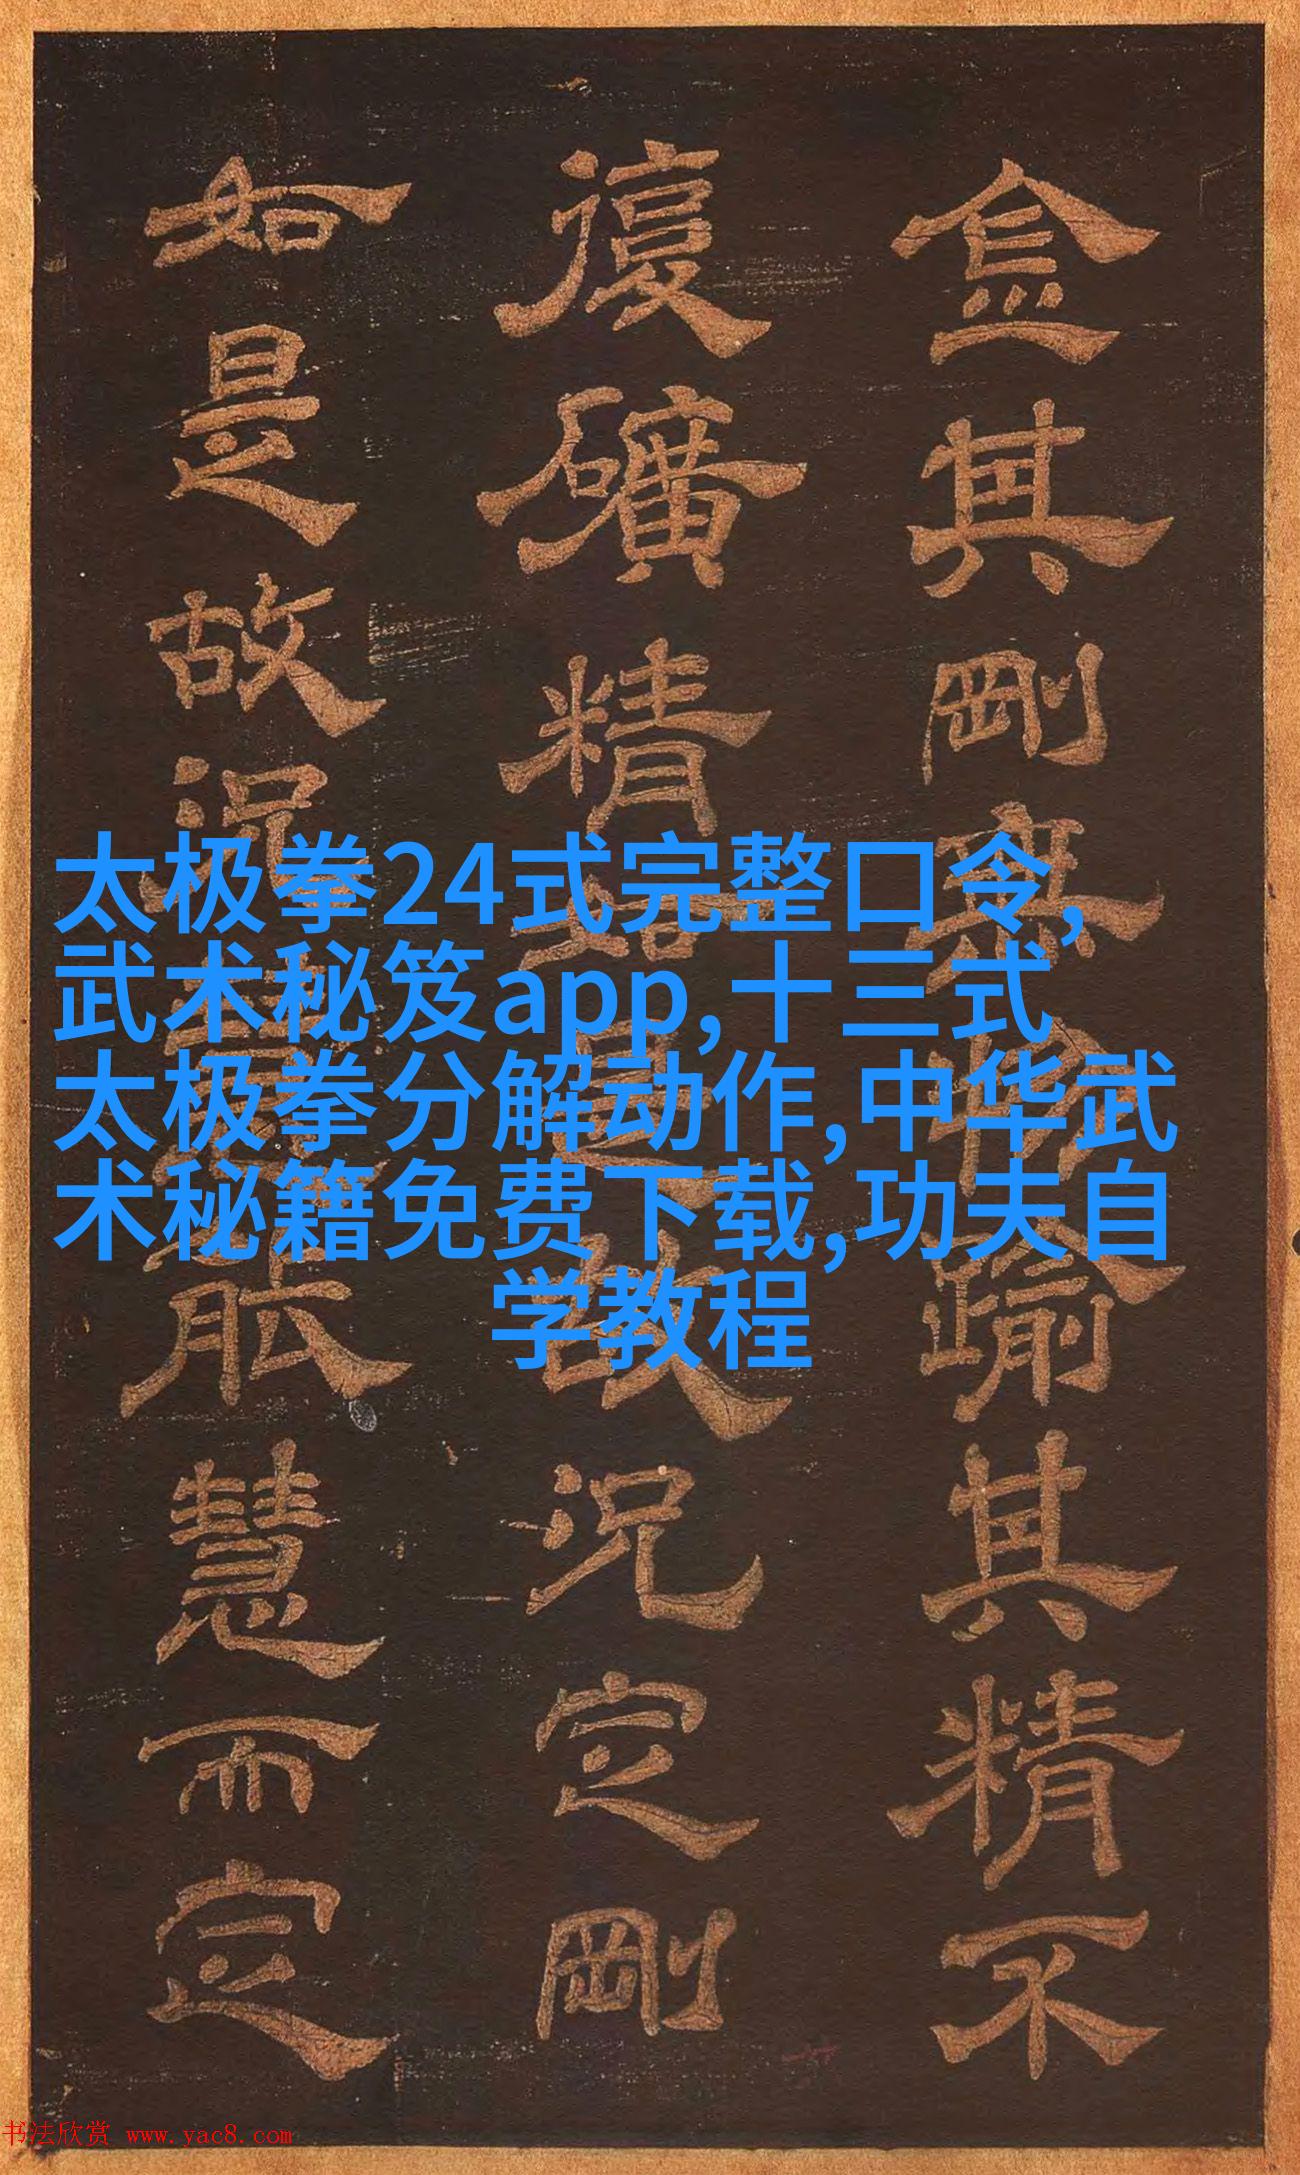 其剛踰其精不
復礦精如是故況定剛
如是故況能慧而定
太极拳24式完整口令,
武术秘笈app,十三式
太极拳分解动作,中华武
术秘籍免费下载,功夫自
学教程
书法欣赏 www.yac8.com